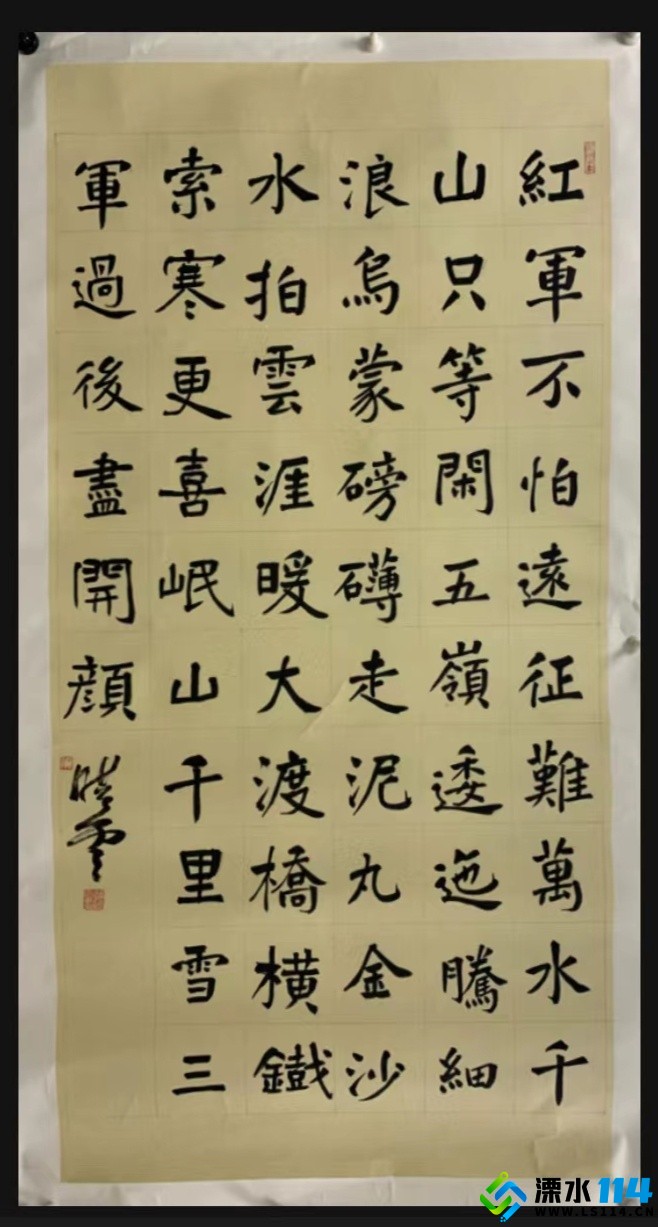 紅軍不怕遠征難萬水千
山只等閑五嶺逶迤騰細
浪烏蒙磅礴走泥丸金沙
水拍雲涯暖大渡橋橫鐵
索寒更喜岷山千里雪三
軍過後盡開顔
溧水114
WWW.LS114.CN